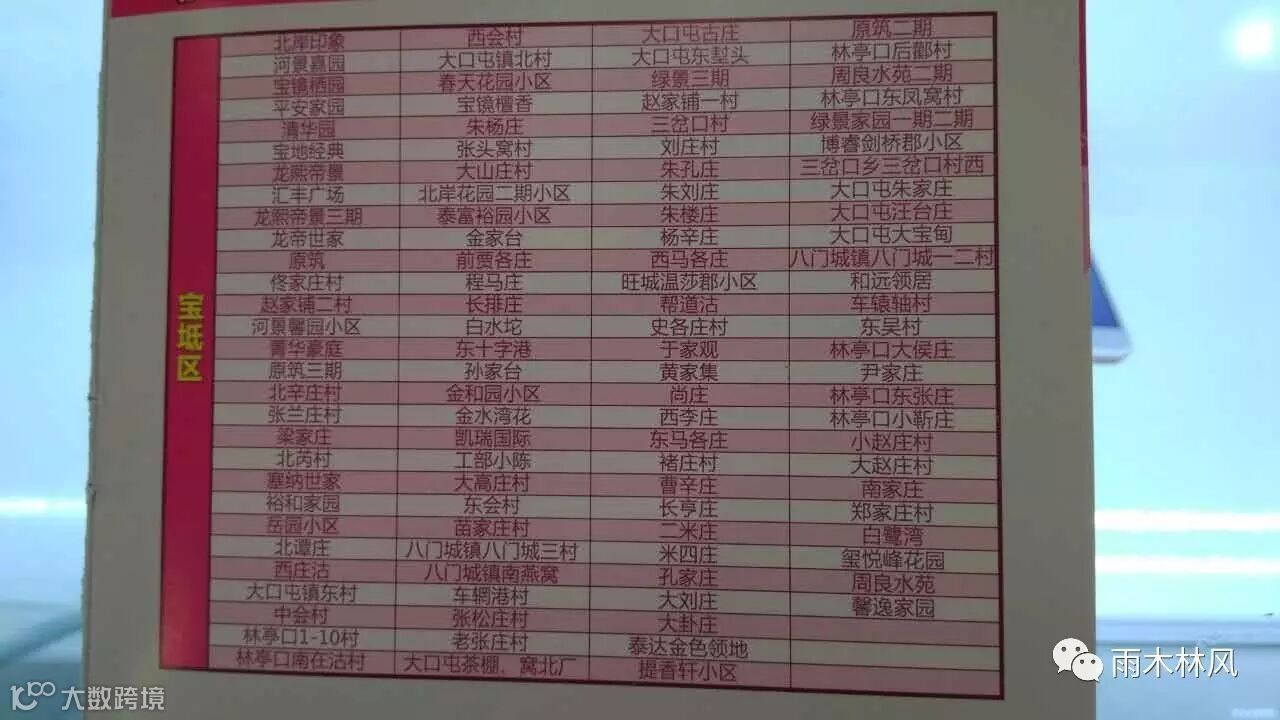 宝坻区
北岸印象 西会村 大口屯古庄 原筑二期
河景嘉园 大口屯镇北村 大口屯东堼头 林亭口后鄑村
宝镜栖园 春天花园小区 绿景三期 周良水苑二期
平安家园 宝镜檀香 赵家铺一村 林亭口东凤窝村
清华园 朱杨庄 三岔口村 绿景家园一期二期
宝地经典 张头窝村 刘庄村 博睿剑桥郡小区
龙熙帝景 大山庄村 朱孔庄 三岔口乡三岔口村西
汇丰广场 北岸花园二期小区 朱刘庄 大口屯朱家庄
龙熙帝景三期 泰富裕园小区 朱楼庄 大口屯汪台庄
龙帝世家 金家台 杨辛庄 大口屯大宝甸
原筑 前贾各庄 西马各庄 八门城镇八门城一二村
佟家庄村 程马庄 旺城温莎郡小区 和远领居
赵家铺二村 长排庄 帮道沽 车辕轴村
河景馨园小区 白水坨 史各庄村 东吴村
菁华豪庭 东十字港 于家观 林亭口大侯庄
原筑三期 孙家台 黄家集 尹家庄
北辛庄村 金和园小区 尚庄 林亭口东张庄
张兰庄村 金水湾花 西李庄 林亭口小靳庄
梁家庄 凯瑞国际 东马各庄 小赵庄村
北芮村 工部小陈 褚庄村 大赵庄村
塞纳世家 大高庄村 曹辛庄 南家庄
裕和家园 东会村 长亨庄 郑家庄村
岳园小区 苗家庄村 二米庄 白鹭湾
北谭庄 八门城镇八门城三村 米四庄 玺悦峰花园
西庄沽 八门城镇南燕窝 孔家庄 周良水苑
大口屯镇东村 车辋港村 大刘庄 馨逸家园
中会村 张松庄村 大卦庄
林亭口1-10村 老张庄村 泰达金色领地
林亭口南在沽村 大口屯茶棚、窝北厂 提香轩小区
雨木林风
大数跨境